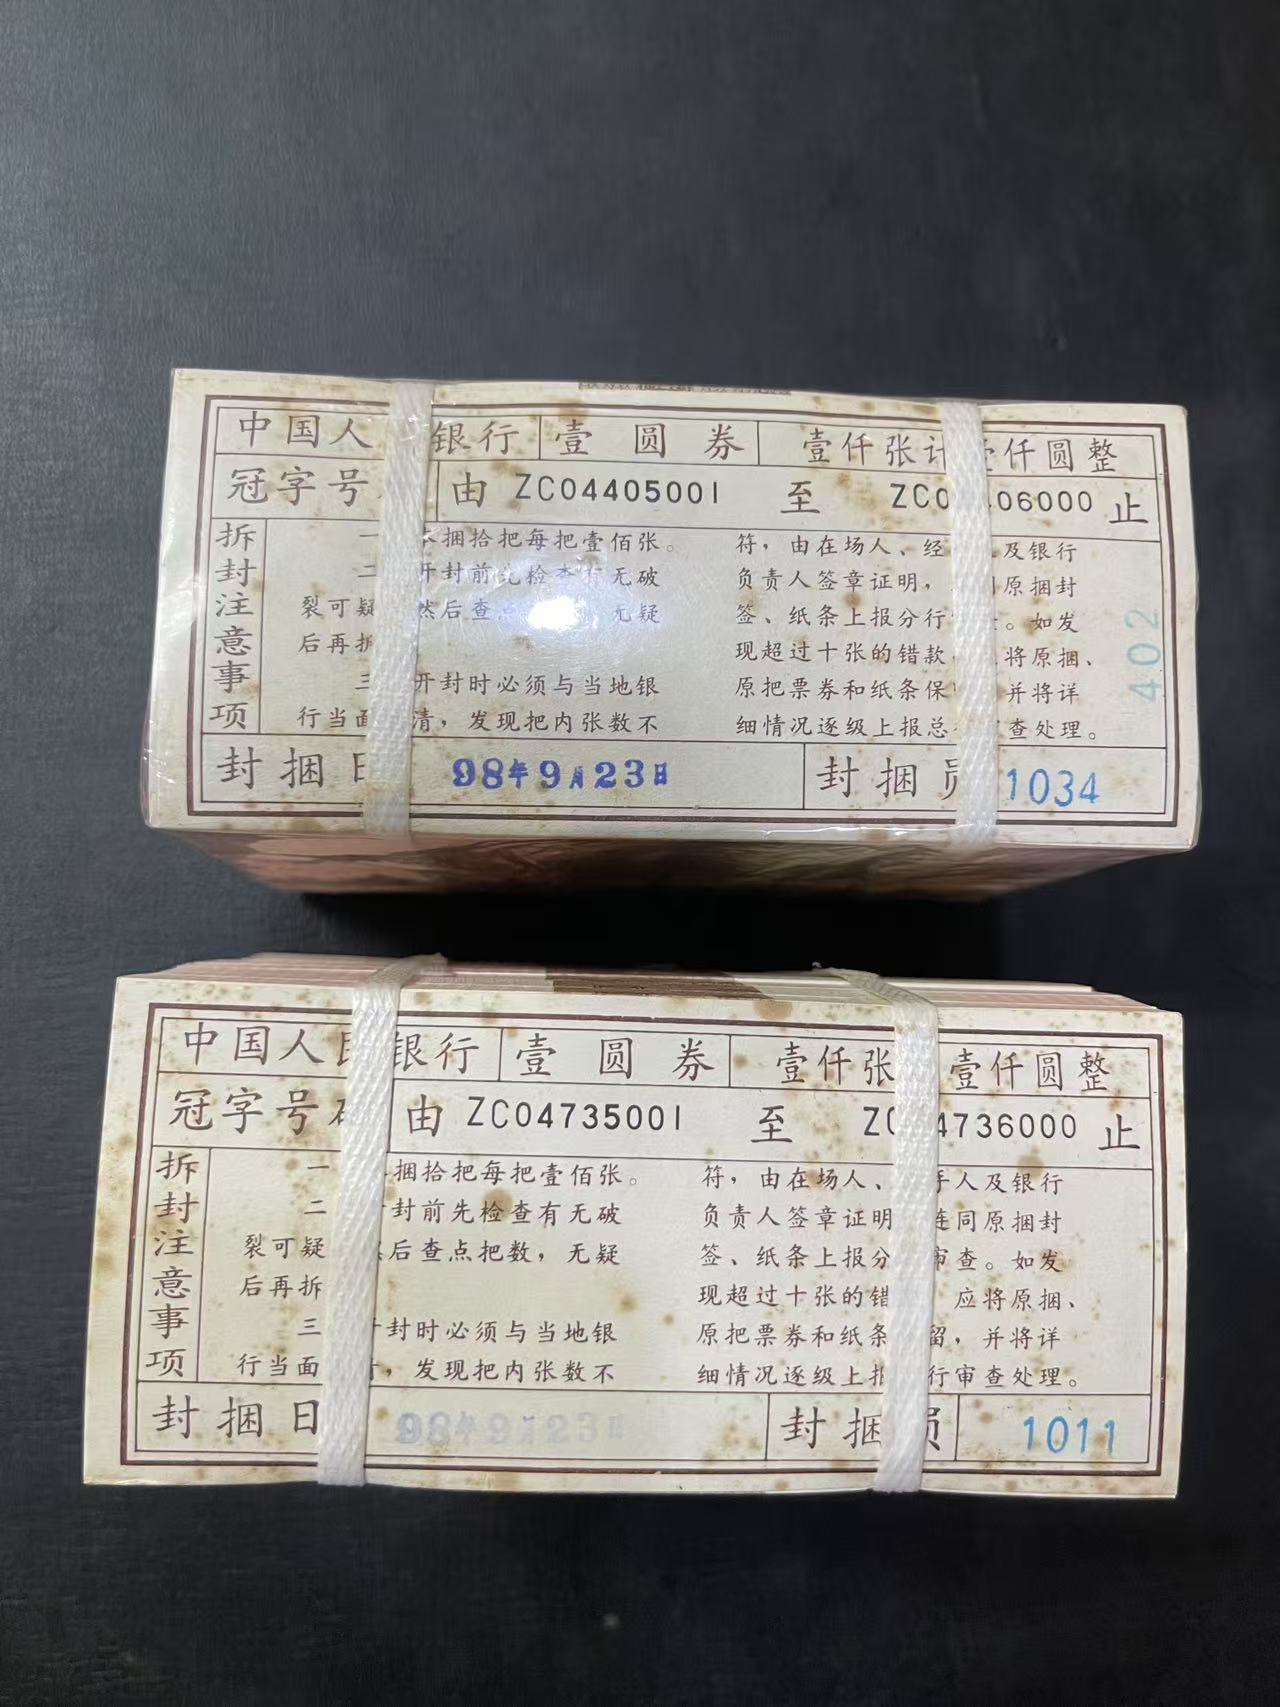 中国人 银行 壹圆券 壹仟张计 壹仟圆整
冠字号 由 ZC04405001 至 ZC0 406000 止
拆封注意事项
一 本捆拾把每把壹佰张。
二 开封前先检查有无破
裂可疑 然后查点 无疑
后再拆
三 开封时必须与当地银
行当面 清，发现把内张数不
符，由在场人、经 及银行
负责人签章证明， 同原捆封
签、纸条上报分行 。如发
现超过十张的错款 将原捆、
原把票券和纸条保 并将详
细情况逐级上报总 审查处理。
402
封捆日 98年9月23日 封捆员 1034
中国人民银行 壹圆券 壹仟张 壹仟圆整
冠字号码 由 ZC04735001 至 ZC 4736000 止
拆封注意事项
一 捆拾把每把壹佰张。
二 封前先检查有无破
裂可疑 然后查点把数，无疑
后再拆
三 封时必须与当地银
行当面 ，发现把内张数不
符，由在场人、 手人及银行
负责人签章证明 连同原捆封
签、纸条上报分 审查。如发
现超过十张的错 应将原捆、
原把票券和纸条 留，并将详
细情况逐级上报 行审查处理。
封捆日 98年9月23日 封捆员 1011